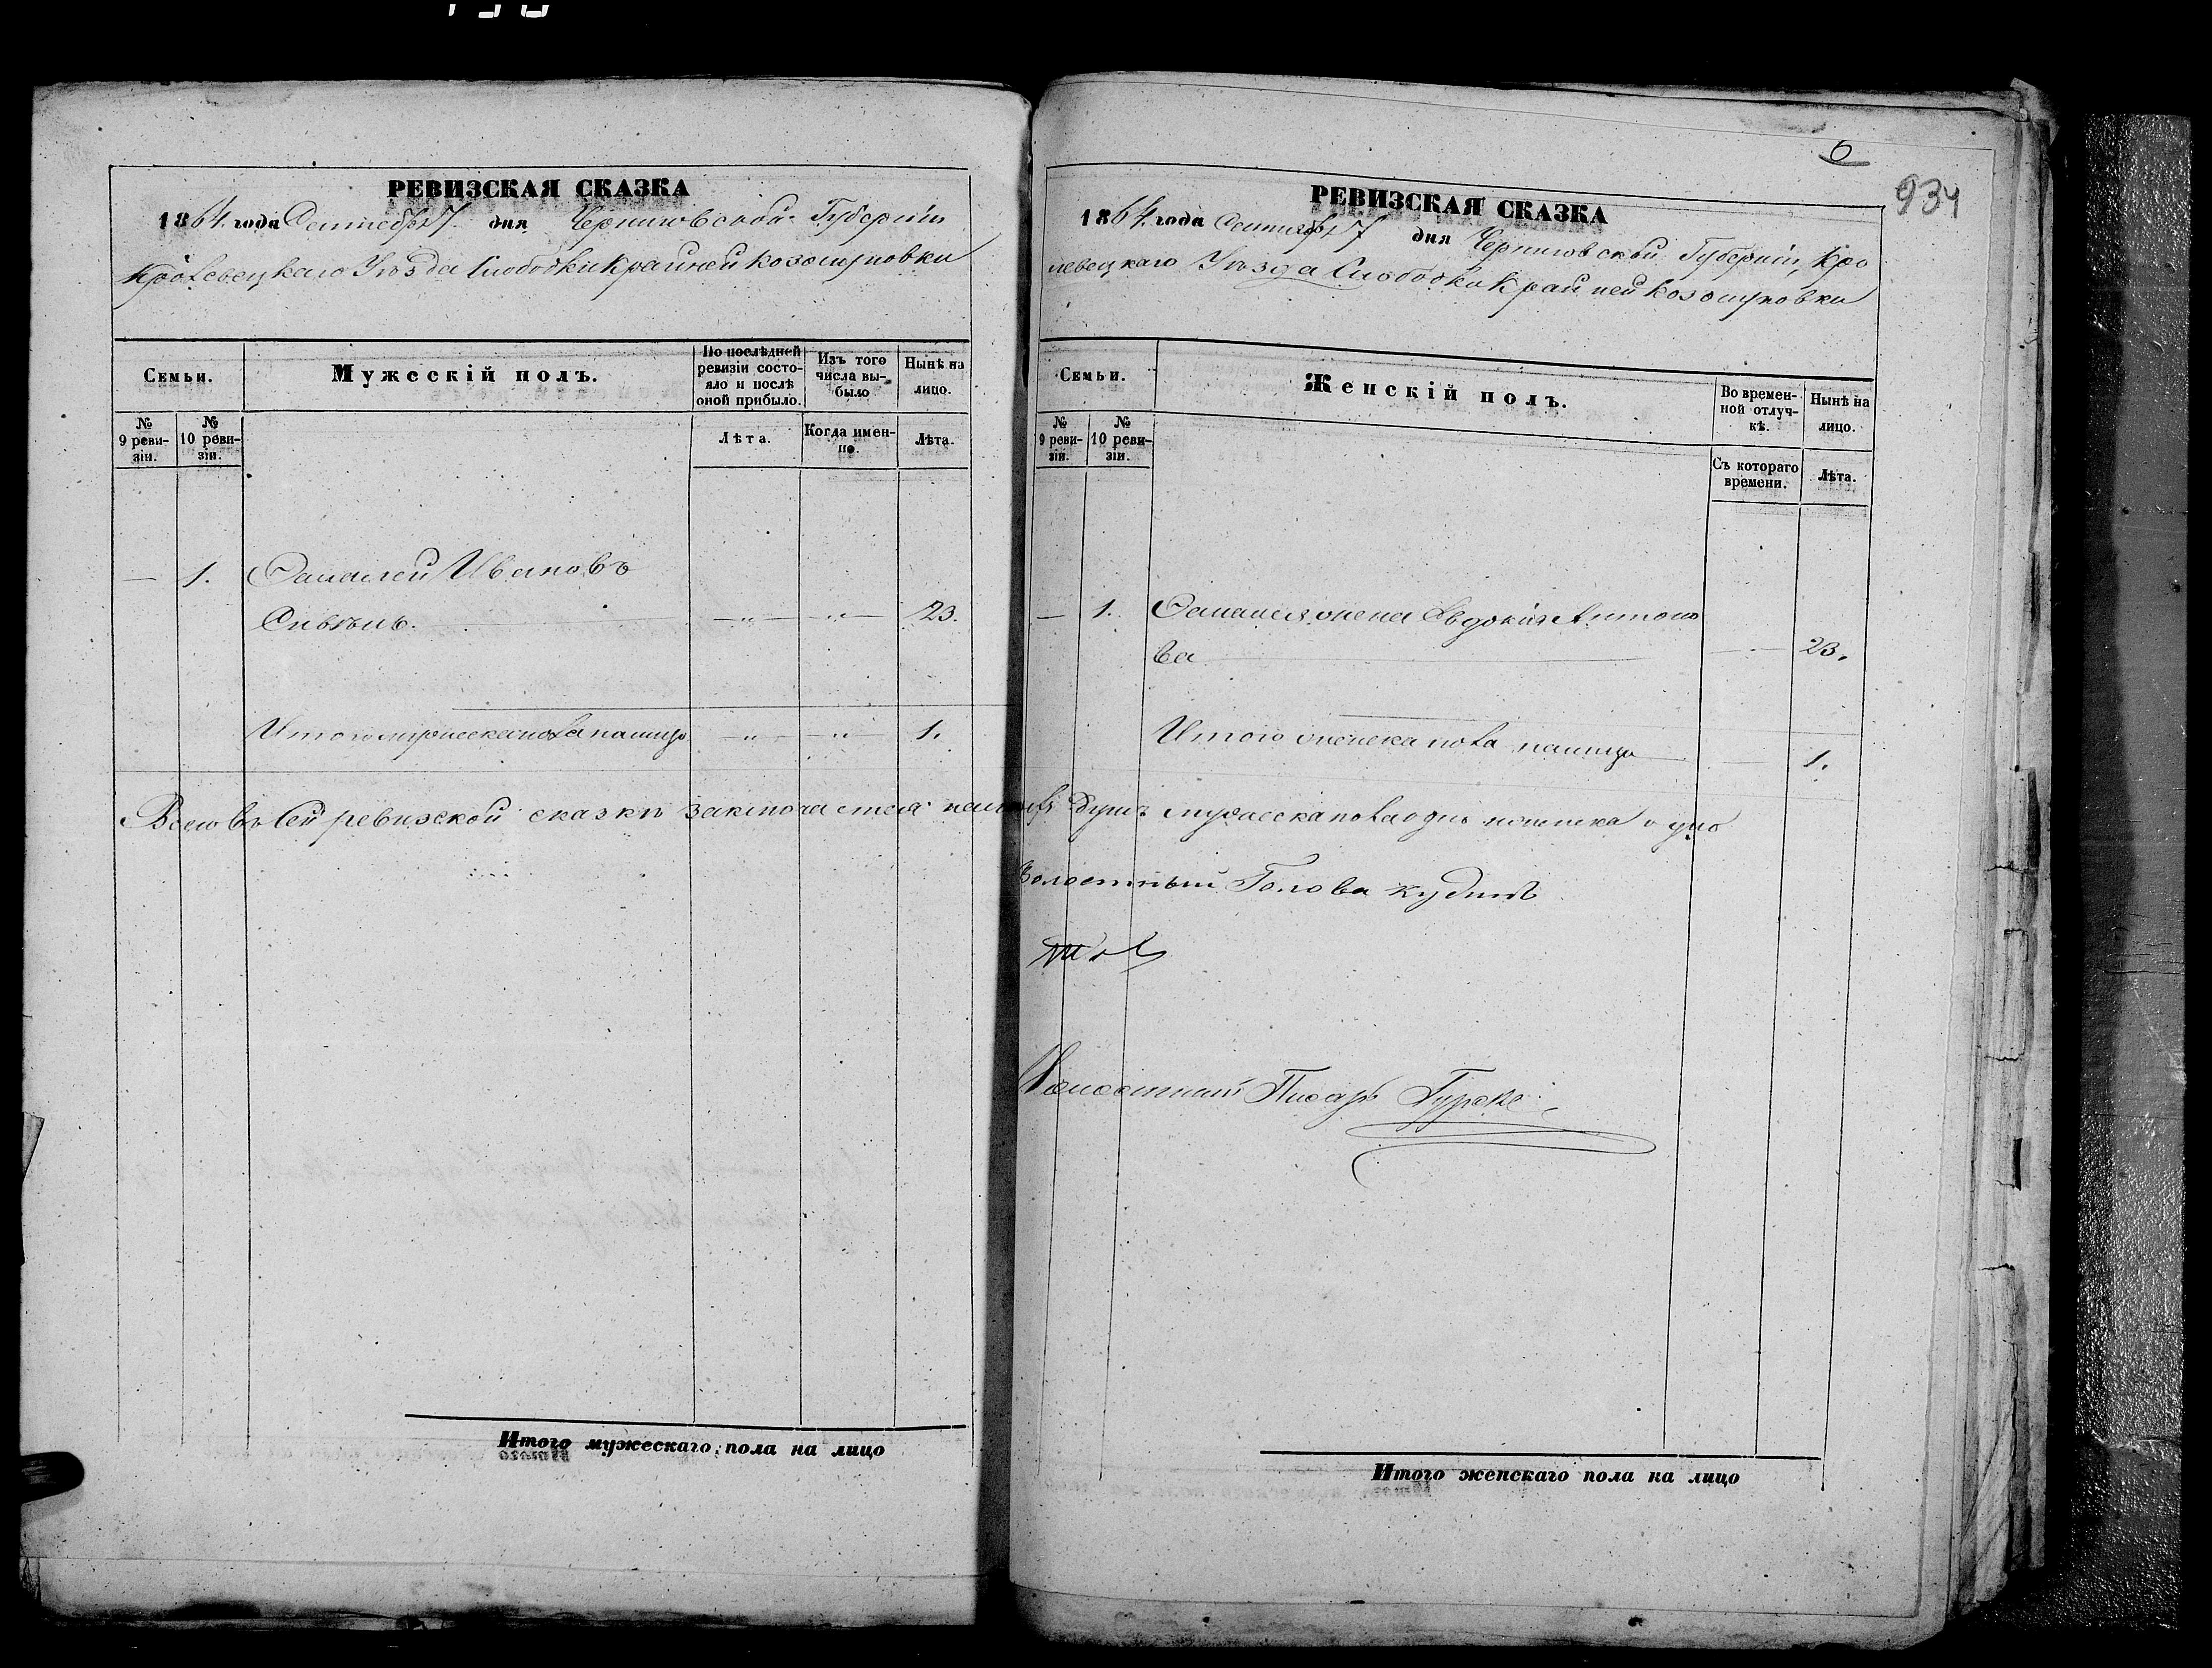 6
934
РЕВИЗСКАЯ СКАЗКА
1864 года Сентября 7 дня Черниговской Губерніи
Кролевецкаго Уѣзда Слободки Крайней
Семьи.
Мужескій полъ.
По послѣдней ревизіи состояло и послѣ оной прибыло.
Изъ того числа выбыло
Нынѣ на лицо.
№ 9 ревизіи.
№ 10 ревизіи.
Лѣта.
Когда именно.
Лѣта.
— 1. Ивановъ
— „ — — „ — 23.
Итого мужеска пола налицо — „ — — „ 1.
Итого мужескаго пола на лицо
РЕВИЗСКАЯ СКАЗКА
1864 года Сентября 7 дня Черниговской Губерніи, Кро
левецкаго Уѣзда Слободки Крайней
Семьи.
Женскій полъ.
Во временной отлучкѣ.
Нынѣ на лицо.
№ 9 ревизіи.
№ 10 ревизіи.
Съ котораго времени.
Лѣта.
— 1. жена Евдокія Антоно
ва 23.
Итого женска пола налицо 1.
Всего въ сей ревизской сказкѣ заключается душъ мужеска пола одна женска одна
Волостный Голова
Волостный Писарь
Итого женскаго пола на лицо